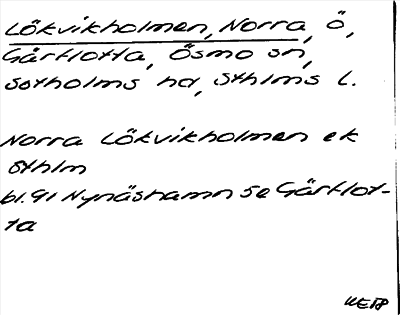 Lökvikholmen, Norra, Ö,
Gårflotta, Ösmo sn,
Sotholms hd, Sthlms l.
Norra Lökvikholmen ek
Sthlm
bl. 91 Nynäshamn SE Gårflot-
ta